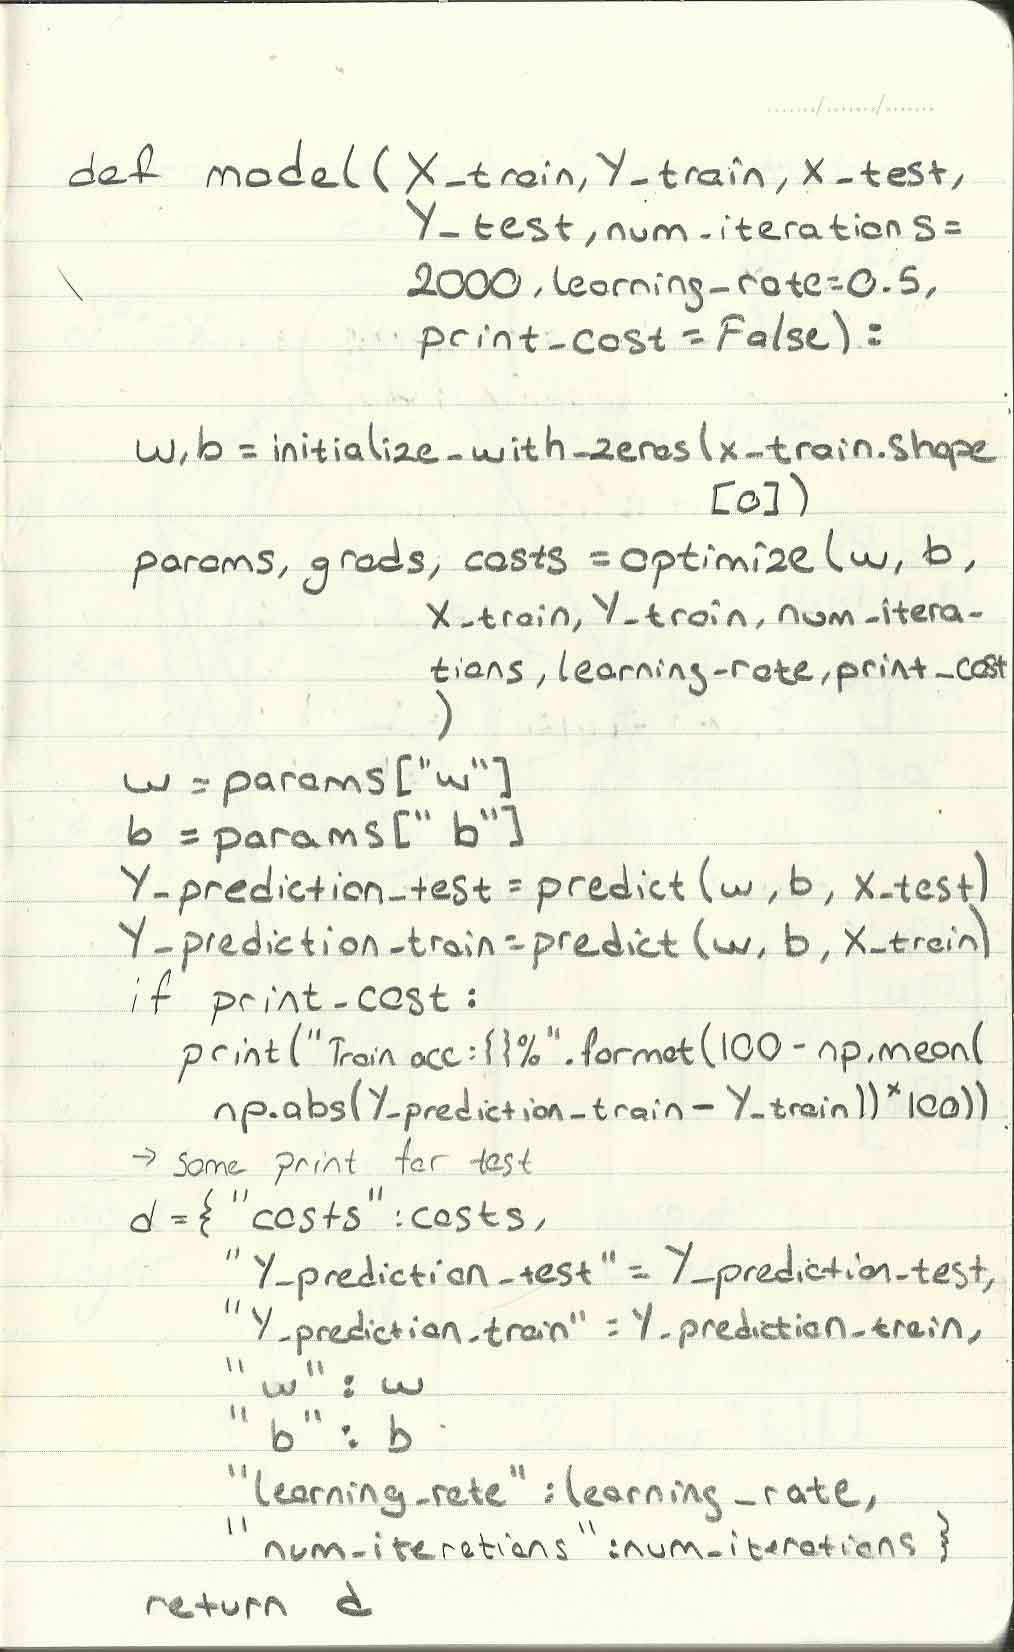 def model(X_train, Y_train, X_test,
Y_test, num_iterations=
2000, learning_rate=0.5,
print_cost = False):
w, b = initialize_with_zeros(x_train.shape
[0])
params, grads, costs = optimize(w, b,
X_train, Y_train, num_itera-
tions, learning_rate, print_cost
)
w = params["w"]
b = params["b"]
Y_prediction_test = predict(w, b, X_test)
Y_prediction_train = predict(w, b, X_train)
if print_cost:
print("Train acc:{}%".format(100 - np.mean(
np.abs(Y_prediction_train - Y_train))*100))
→ some print for test
d = {"costs":costs,
"Y_prediction_test" = Y_prediction_test,
"Y_prediction_train" = Y_prediction_train,
"w" : w
"b" : b
"learning_rate" : learning_rate,
"num_iterations" : num_iterations }
return d